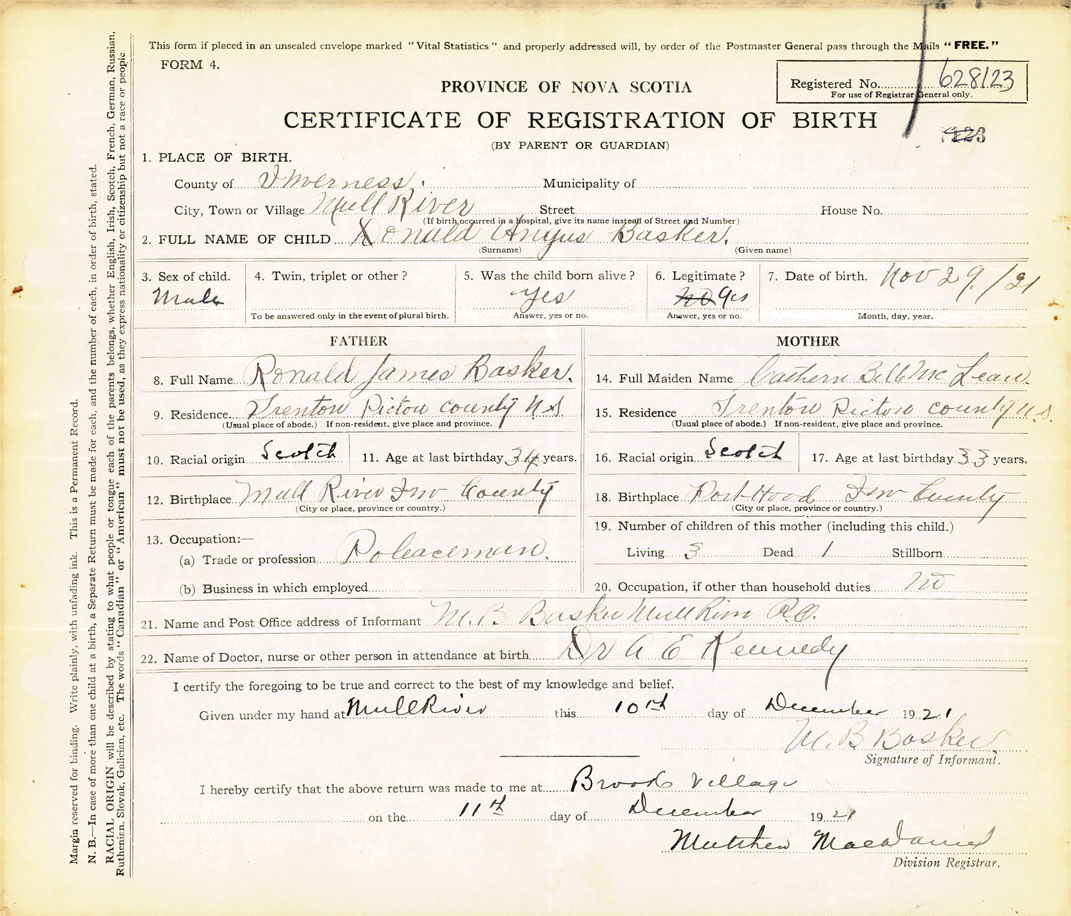 This form if placed in an unscaled envelope marked "Vital Statistics" and properly addressed will, by order of the Postmaster General pass through the Mails "FREE."
FORM 4.
Registered No. 628123
For use of Registrar General only.
PROVINCE OF NOVA SCOTIA
CERTIFICATE OF REGISTRATION OF BIRTH
(BY PARENT OR GUARDIAN)
1. PLACE OF BIRTH.
County of Inverness, Municipality of
City, Town or Village Mull River Street House No.
(If birth occurred in a hospital, give its name instead of Street and Number)
2. FULL NAME OF CHILD Donald Angus Basker.
(Surname) (Given name)
3. Sex of child. 4. Twin, triplet or other? 5. Was the child born alive? 6. Legitimate? 7. Date of birth. Nov 29/21
Male yes no yes
To be answered only in the event of plural birth. Answer, yes or no. Answer, yes or no. Month, day, year.
FATHER MOTHER
8. Full Name Ronald James Basker. 14. Full Maiden Name Cathern Bell McLean.
9. Residence Trenton Pictou county NS 15. Residence Trenton Pictou county N.S.
(Usual place of abode.) If non-resident, give place and province. (Usual place of abode.) If non-resident, give place and province.
10. Racial origin Scotch 11. Age at last birthday 34 years. 16. Racial origin Scotch 17. Age at last birthday 33 years.
12. Birthplace Mull River Inv County 18. Birthplace Port Hood Inv County
(City or place, province or country.) (City or place, province or country.)
13. Occupation:— 19. Number of children of this mother (including this child.)
(a) Trade or profession Poleaceman. Living 3 Dead 1 Stillborn
(b) Business in which employed 20. Occupation, if other than household duties no
21. Name and Post Office address of Informant M. B Basker Mull River P.O.
22. Name of Doctor, nurse or other person in attendance at birth Dr A E Kennedy
I certify the foregoing to be true and correct to the best of my knowledge and belief.
Given under my hand at Mull River this 10th day of December 1921
M. B Basker
Signature of Informant.
I hereby certify that the above return was made to me at Brook Village
on the 11th day of December 1921
Matthew Macdaniel
Division Registrar.
Margin reserved for binding. Write plainly, with unfading ink. This is a Permanent Record.
N. B.—In case of more than one child at a birth, a Separate Return must be made for each, and the number of each, in order of birth, stated.
RACIAL ORIGIN will be described by stating to what people or tongue each of the parents belongs, whether English, Irish, Scotch, French, German, Russian,
Ruthenian, Slovak, Galician, etc. The words "Canadian" or "American" must not be used, as they express nationality or citizenship but not a race or people.